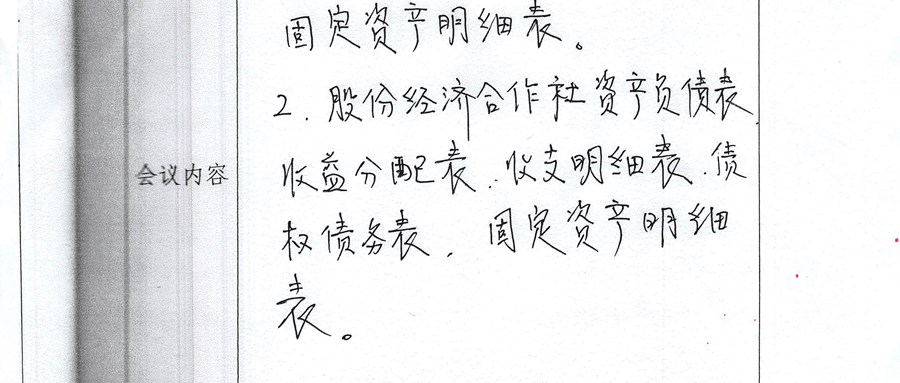 固定资产明细表。
2.股份经济合作社资产负债表
会议内容
收益分配表、收支明细表、债
权债务表、固定资产明细
表。